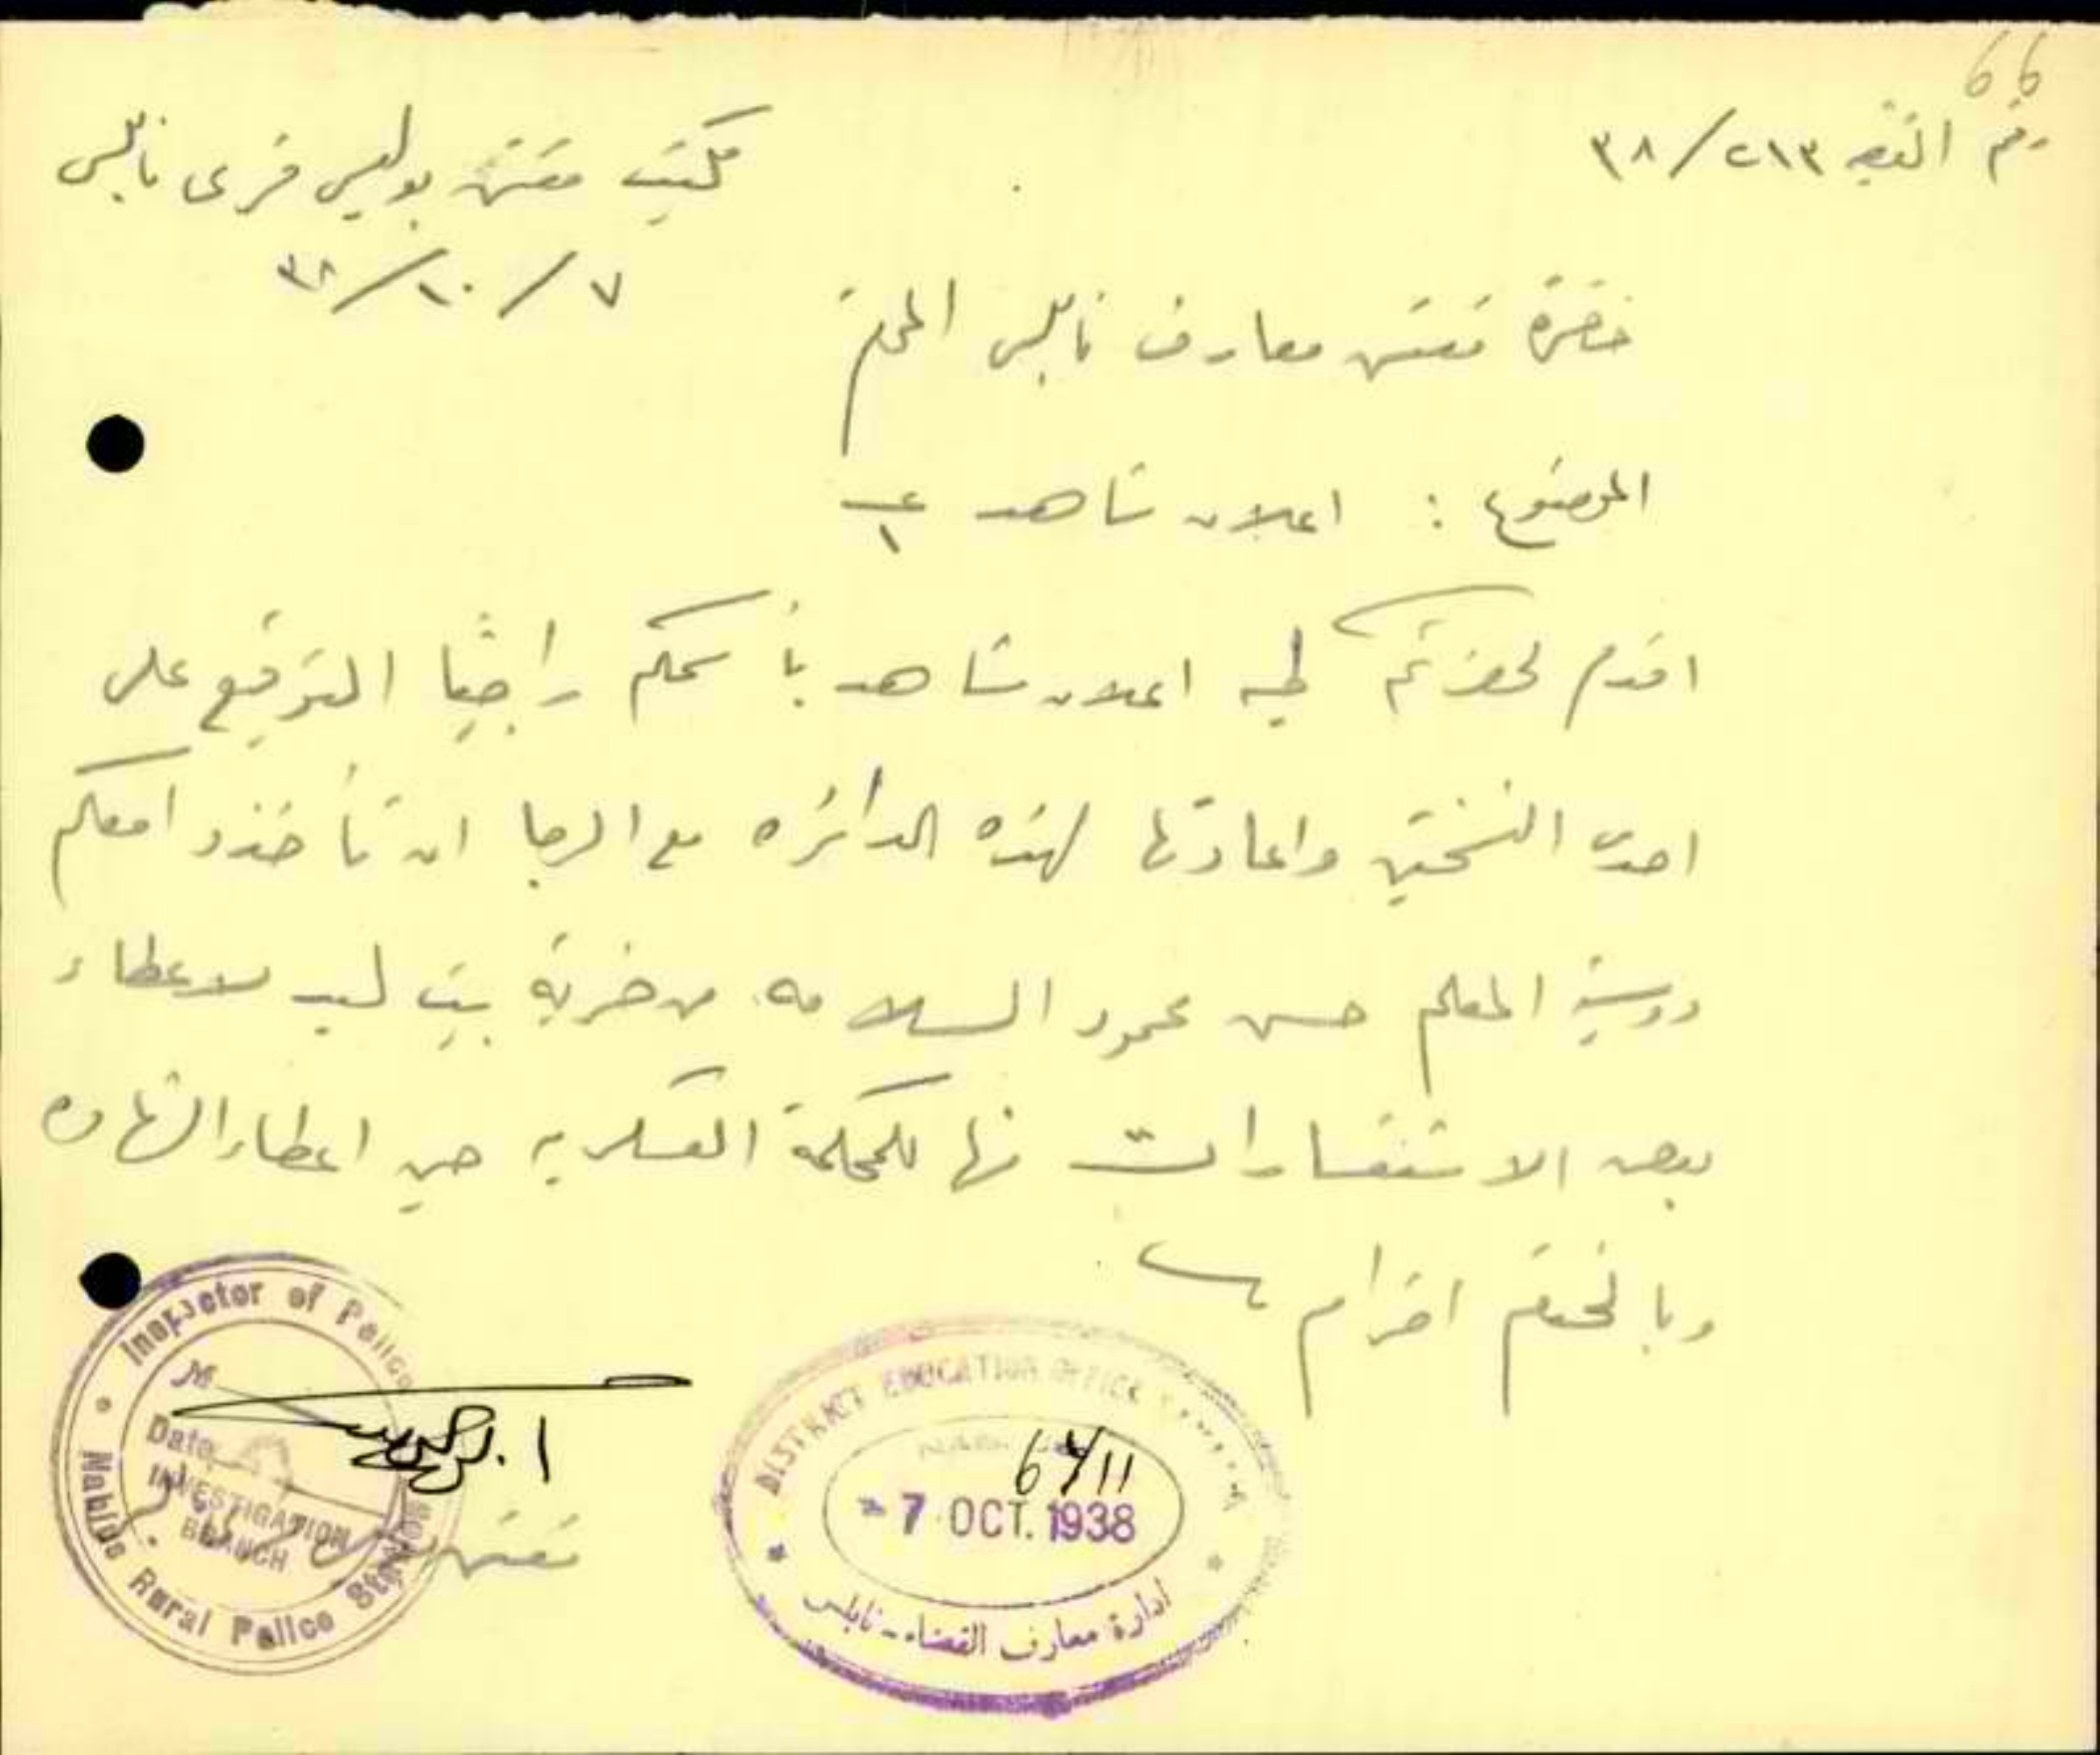 66
رقم القضيه ٢١٣/٣٨
مكتب مفتش بوليس قرى نابلس
٧/١٠/٣٨
حضرة مفتش معارف نابلس المحترم
الموضوع : اعلان شاهد عـ ١
اقدم لحضرتكم طيه اعلان شاهد بأسمكم راجيًا التوقيع على
احدى النسختين واعادتها لهذه الدائره مع الرجا ان تأخذوا معكم
دوسية المعلم حسن محمود السلامه من خربة بيت ليد لاعطاء
بعض الاستفسارات منها للمحكمة العسكريه حين اعطاء الشهاده
وبالختام احترام
مفتش
Inspector of Police
No
Date
INVESTIGATION
BRANCH
Nablus Rural Police Station
DISTRICT EDUCATION OFFICE
NABLUS
64/11
- 7 OCT. 1938
ادارة معارف القضاء - نابلس